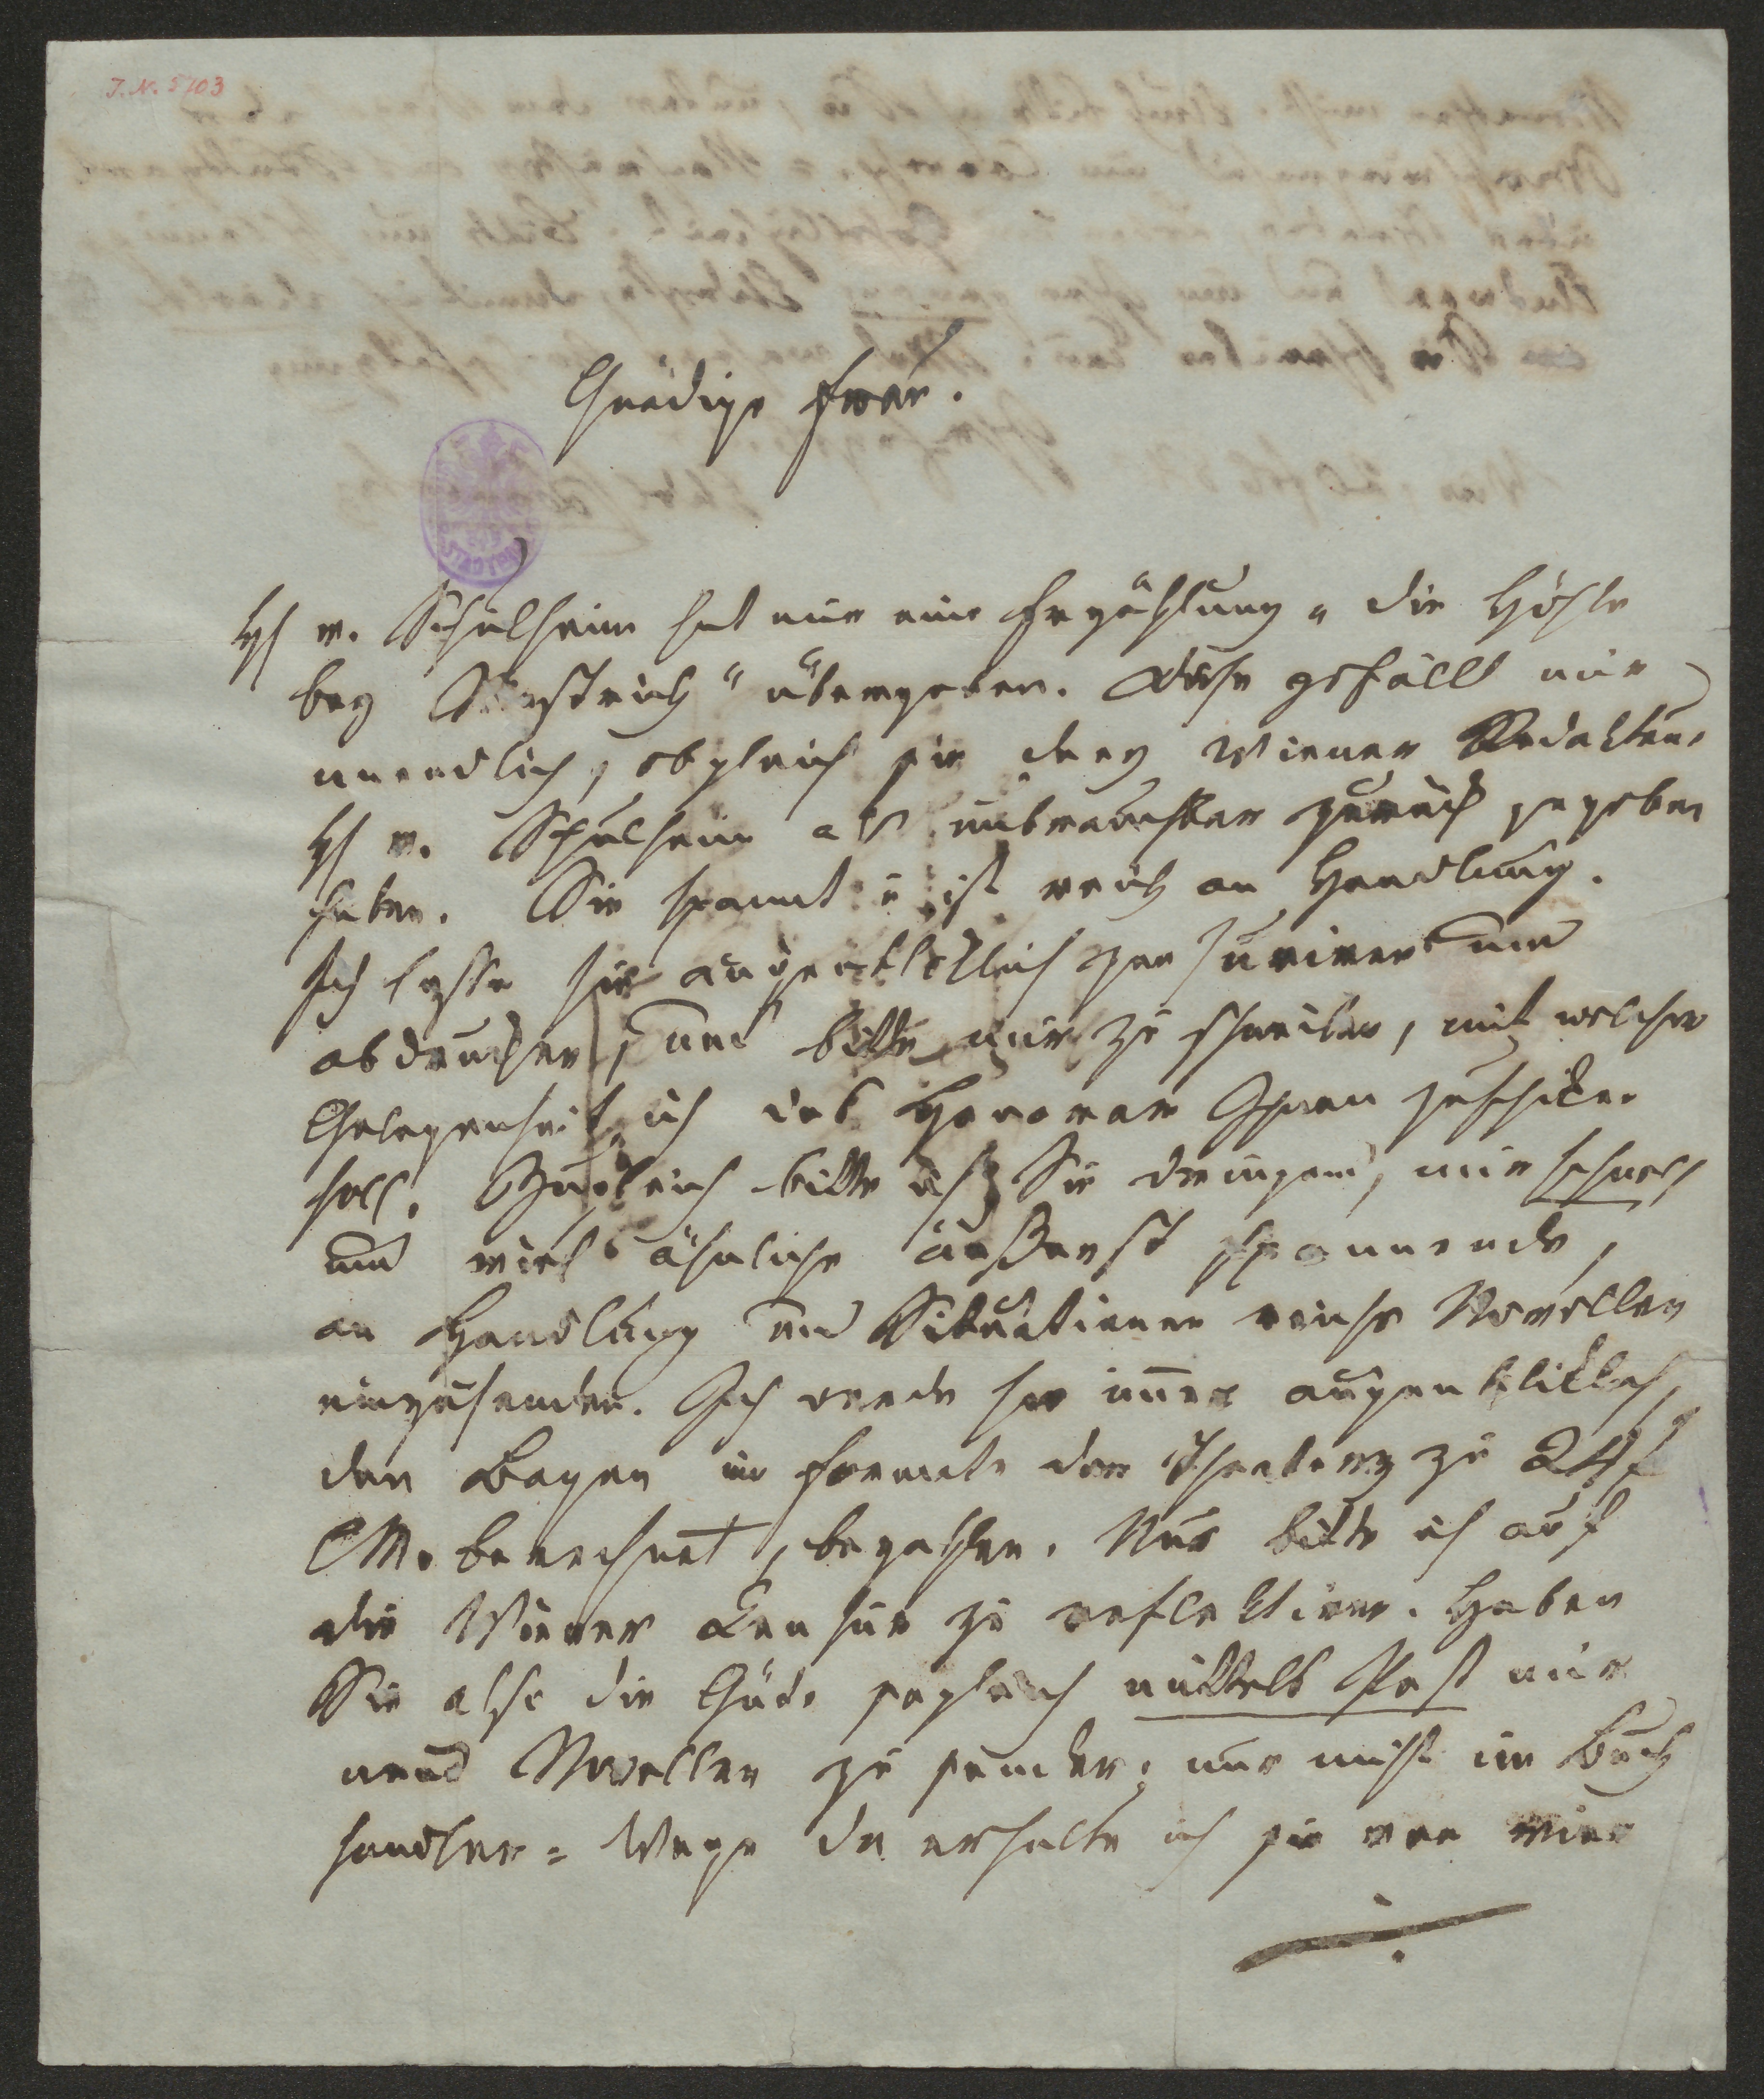 J.N. 5703
Gnädige Frau.
H v. Schulheim hat mir eine Erzählung „die Höhle
bey Mastrich“ übergeben. Diese gefällt mir
unendlich, obgleich sie drey Wiener Redakteure
H v. Schulheim als unbrauchbar zurück gegeben
haben. Sie spannt u ist reich an Handlung.
Ich lasse sie augenblicklich zensuriren und
abdrucken, und bitte mir zu schreiben, mit welcher
Gelegenheit ich das Honorar Ihnen zuschicken
soll. Zugleich bitte ich Sie dringend, mir schnell
und viel ähnliche äußerst spannende,
an Handlung und Situationen reiche Novellen
einzusenden. Ich werde sie immer augenblicklich,
den Bogen im Formate der Theaterz zu 24 f
CM. berechnet, bezahlen. Nur bitte ich auf
die Wiener Censur zu reflektiren. Haben
Sie also die Güte sogleich mittels Post mir
neue Novellen zu senden; nur nicht im Buch
handler = Wege da erhalte ich sie vor vier